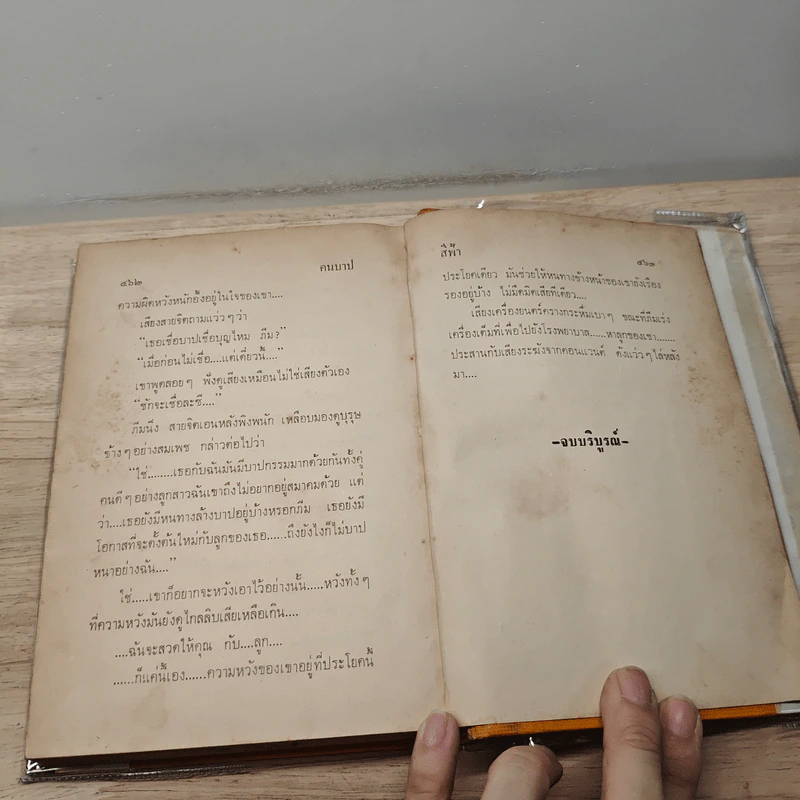 ๔๖๒
คนบาป
ความผิดหวังหนักอึ้งอยู่ในใจของเขา....
เสียงสายจิตถามแว่ว ๆ ว่า
"เธอเชื่อบาปเชื่อบุญไหม ภีม?"
"เมื่อก่อนไม่เชื่อ....แต่เดี๋ยวนี้...."
เขาพูดลอย ๆ ฟังดูเสียงเหมือนไม่ใช่เสียงตัวเอง
"ชักจะเชื่อละซี...."
ภีมนิ่ง สายจิตเอนหลังพิงพนัก เหลือบมองดูบุรุษ
ข้าง ๆ อย่างสมเพช กล่าวต่อไปว่า
"ใช่........เธอกับฉันมันมีบาปกรรมมากด้วยกันทั้งคู่
คนดี ๆ อย่างลูกสาวฉันเขาถึงไม่อยากอยู่สมาคมด้วย แต่
ว่า....เธอยังมีหนทางล้างบาปอยู่บ้างหรอกภีม เธอยังมี
โอกาสที่จะตั้งต้นใหม่กับลูกของเธอ......ถึงยังไงก็ไม่บาป
หนาอย่างฉัน...."
ใช่.....เขาก็อยากจะหวังเอาไว้อย่างนั้น.....หวังทั้ง ๆ
ที่ความหวังมันยังดูไกลลิบเสียเหลือเกิน....
....ฉันจะสวดให้คุณ กับ....ลูก....
......ก็แค่นี้เอง......ความหวังของเขาอยู่ที่ประโยคนี้
สีฟ้า
๔๖๓
ประโยคเดียว มันช่วยให้หนทางข้างหน้าของเขายังเรือง
รองอยู่บ้าง ไม่มืดมิดเสียทีเดียว....
เสียงเครื่องยนต์ครางกระหึ่มเบา ๆ ขณะที่ภีมเร่ง
เครื่องเต็มที่เพื่อไปยังโรงพยาบาล......หาลูกของเขา.......
ประสานกับเสียงระฆังจากคอนแวนต์ ดังแว่ว ๆ ไล่หลัง
มา....
-จบบริบูรณ์-